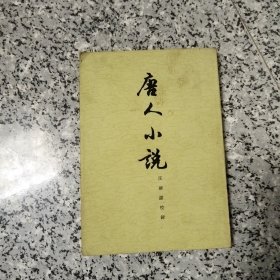 唐人小説
汪辟疆校錄